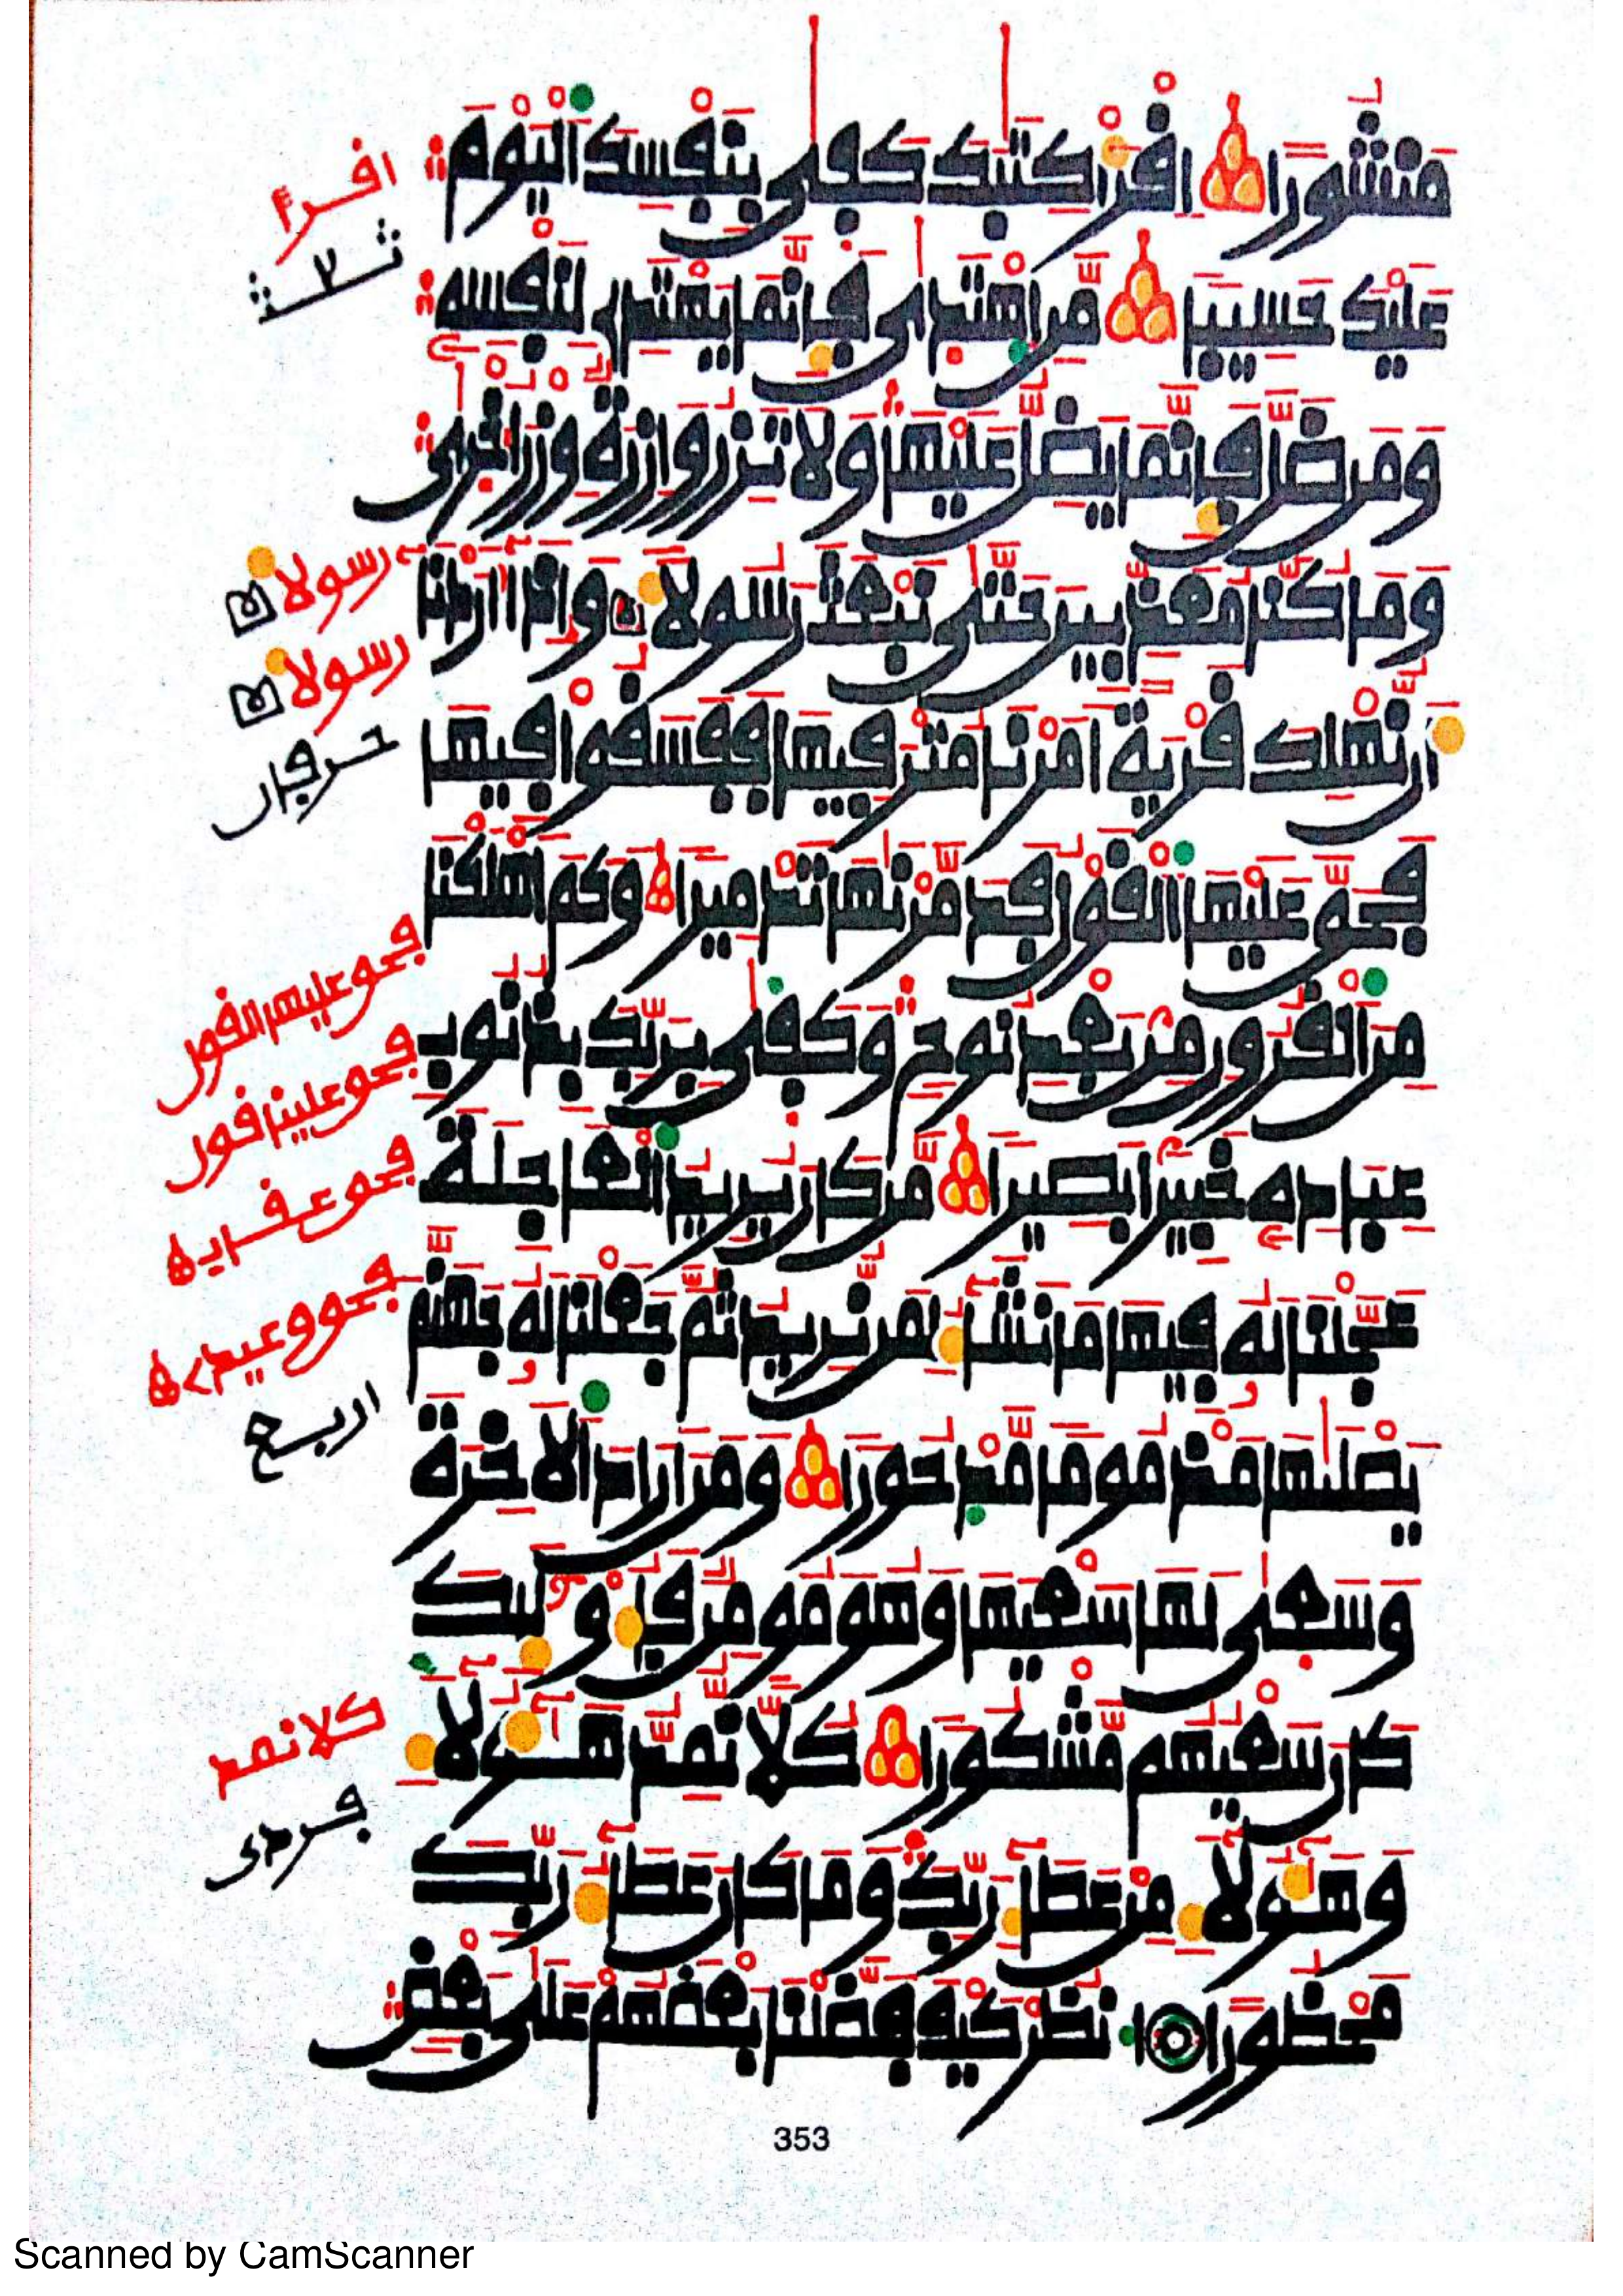 مَنشُورًا اقْرَأْ كِتَٰبَكَ كَفَىٰ بِنَفْسِكَ الْيَوْمَ
عَلَيْكَ حَسِيبًا مَّنِ اهْتَدَىٰ فَإِنَّمَا يَهْتَدِي لِنَفْسِهِ
وَمَن ضَلَّ فَإِنَّمَا يَضِلُّ عَلَيْهَا وَلَا تَزِرُ وَازِرَةٌ وِزْرَ أُخْرَىٰ
وَمَا كُنَّا مُعَذِّبِينَ حَتَّىٰ نَبْعَثَ رَسُولًا وَإِذَا أَرَدْنَا
أَن نُّهْلِكَ قَرْيَةً أَمَرْنَا مُتْرَفِيهَا فَفَسَقُوا فِيهَا
فَحَقَّ عَلَيْهَا الْقَوْلُ فَدَمَّرْنَٰهَا تَدْمِيرًا وَكَمْ أَهْلَكْنَا
مِنَ الْقُرُونِ مِن بَعْدِ نُوحٍ وَكَفَىٰ بِرَبِّكَ بِذُنُوبِ
عِبَادِهِ خَبِيرًا بَصِيرًا مَّن كَانَ يُرِيدُ الْعَاجِلَةَ
عَجَّلْنَا لَهُ فِيهَا مَا نَشَاءُ لِمَن نُّرِيدُ ثُمَّ جَعَلْنَا لَهُ جَهَنَّمَ
يَصْلَىٰهَا مَذْمُومًا مَّدْحُورًا وَمَنْ أَرَادَ الْآخِرَةَ
وَسَعَىٰ لَهَا سَعْيَهَا وَهُوَ مُومِنٌ فَأُوْلَٰئِكَ
كَانَ سَعْيُهُم مَّشْكُورًا كُلًّا نُّمِدُّ هَٰؤُلَاءِ
وَهَٰؤُلَاءِ مِنْ عَطَاءِ رَبِّكَ وَمَا كَانَ عَطَاءُ رَبِّكَ
مَحْظُورًا انظُرْ كَيْفَ فَضَّلْنَا بَعْضَهُمْ عَلَىٰ بَعْضٍ
اقرأ
رسولا
رسولا
حرفان
فحق عليهم القول
اربع
كلا نمد
353
Scanned by CamScanner